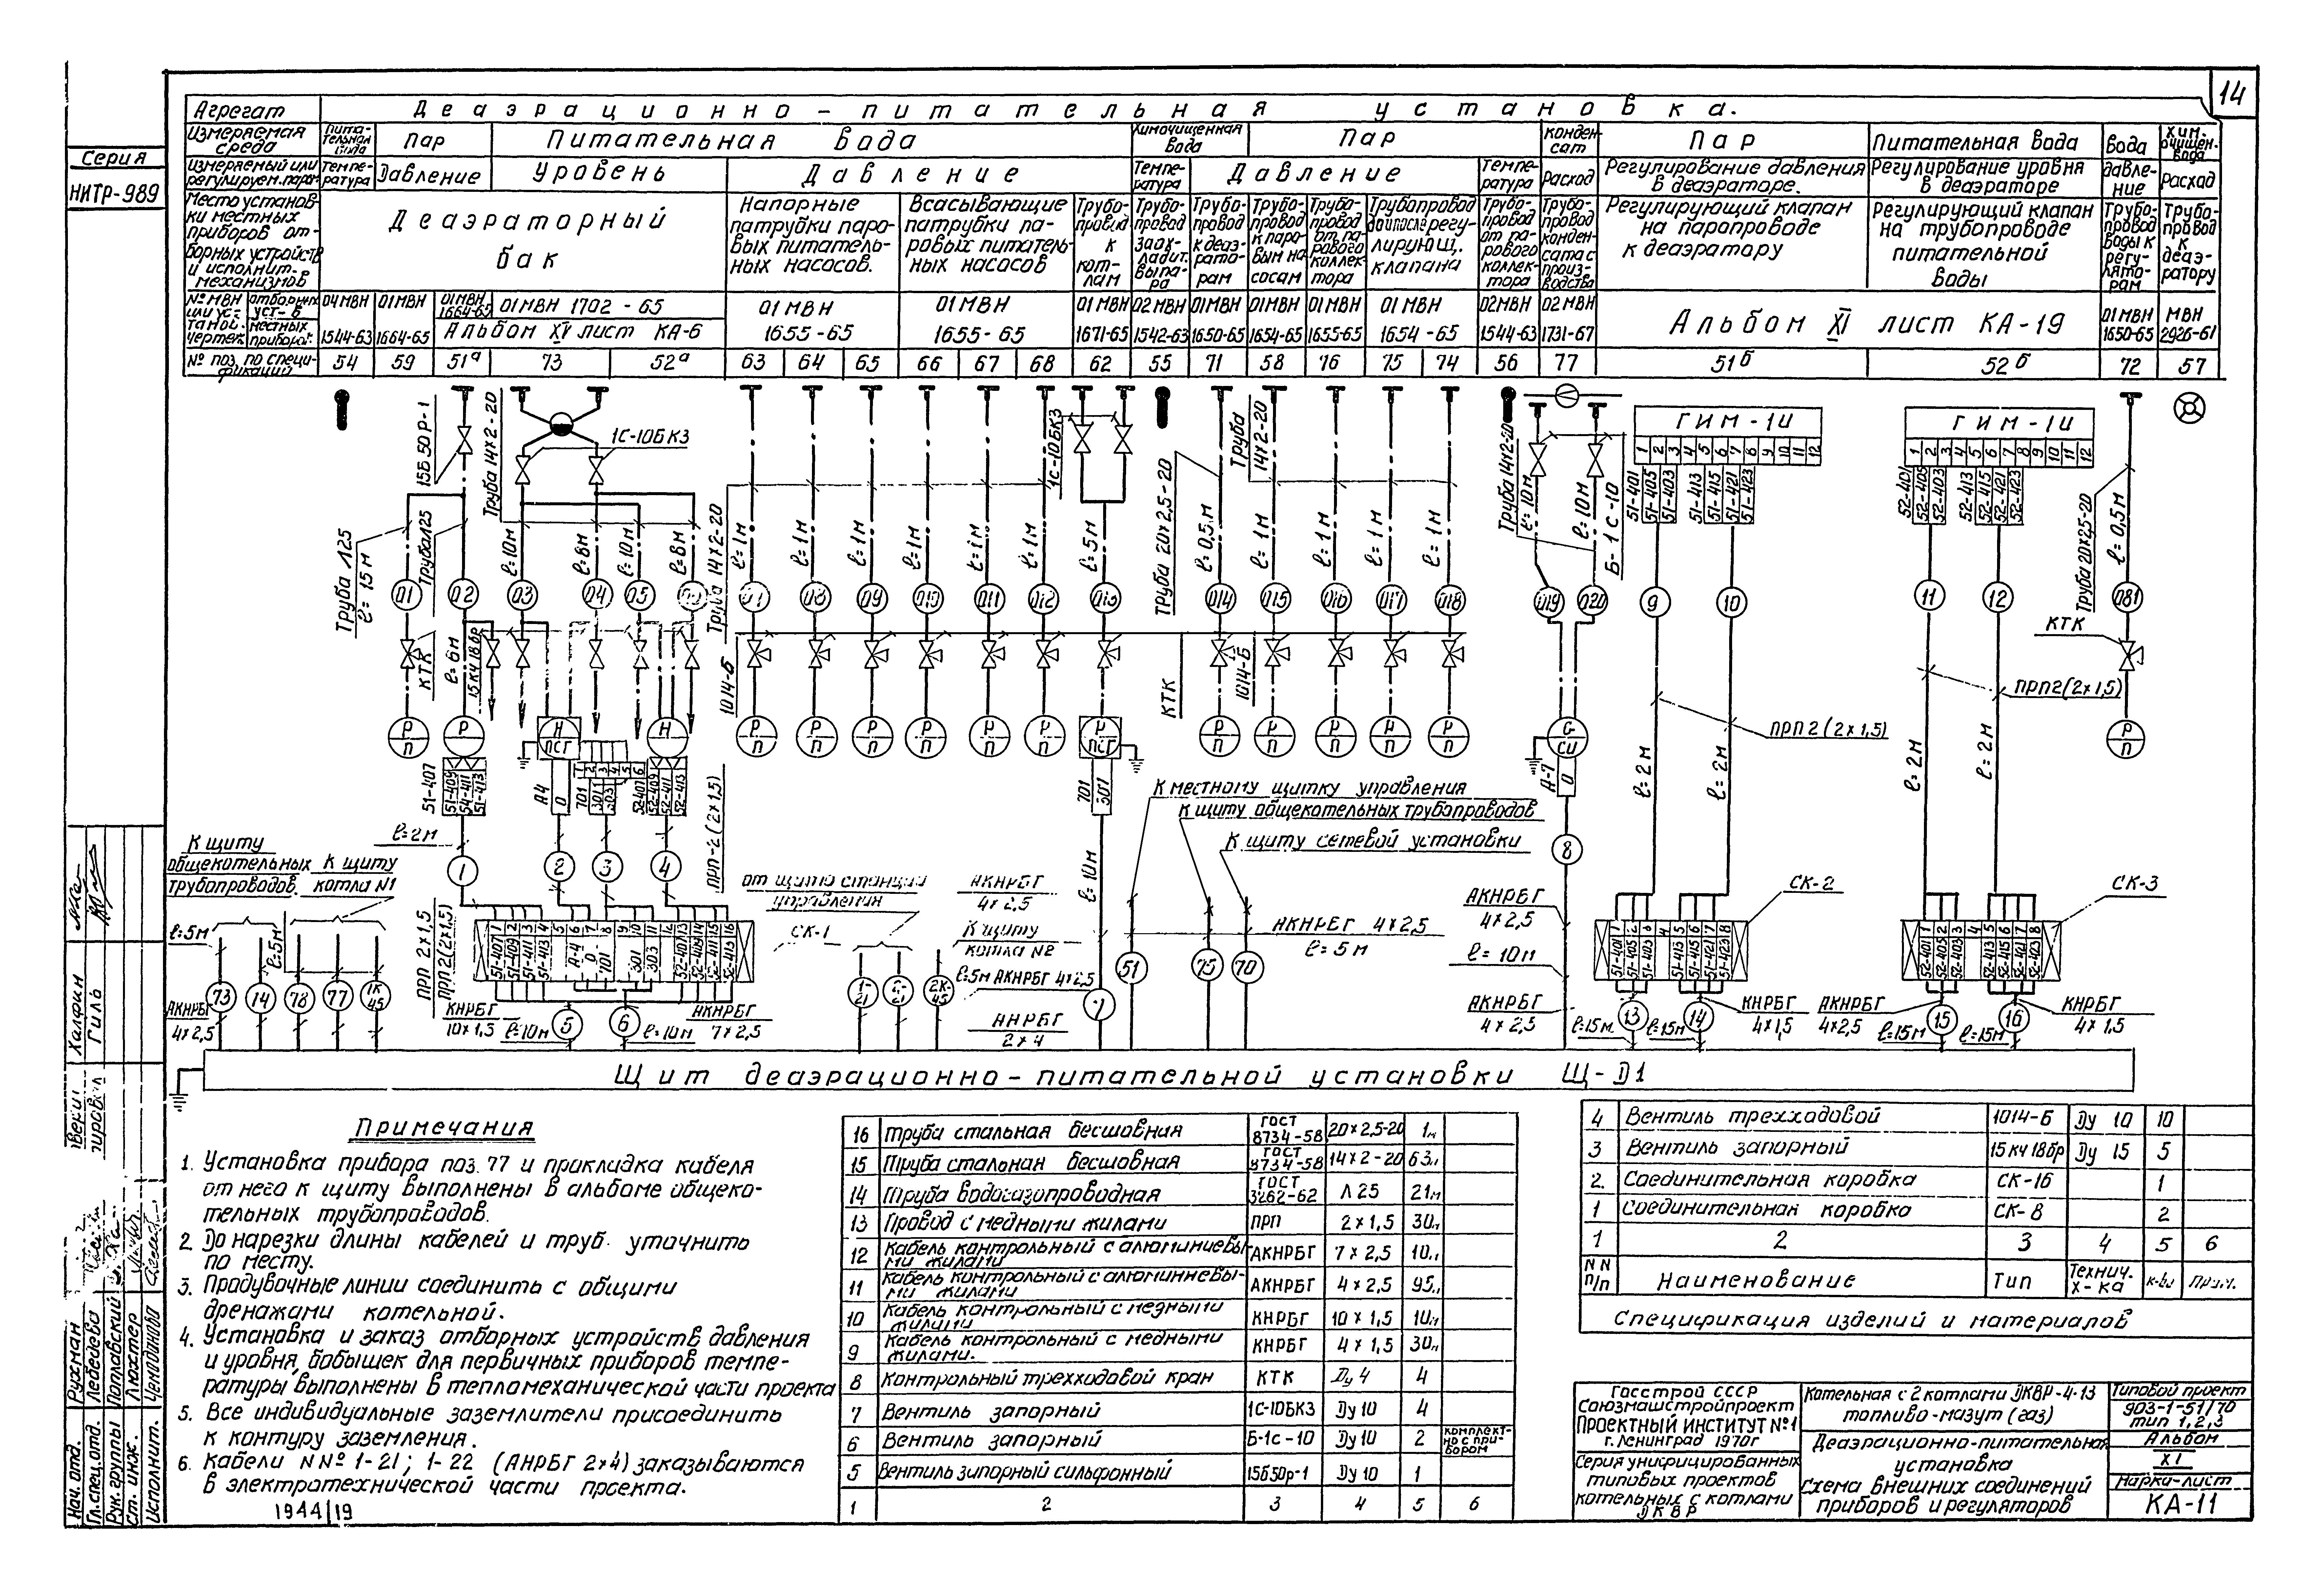 14
Серия
НИТР-989
Агрегат
Деаэрационно-питательная установка.
Измеряемая среда
Питательная вода
Пар
Питательная вода
Химочищенная вода
Пар
Конденсат
Пар
Питательная вода
Вода
Хим. очищен. вода
Измеряемый или регулируем. парам.
Температура
Давление
Уровень
Давление
Температура
Давление
Температура
Расход
Регулирование давления в деаэраторе.
Регулирование уровня в деаэраторе
Давление
Расход
Место установки местных приборов отборных устройств и исполнит. механизмов
Деаэраторный бак
Напорные патрубки паровых питательных насосов.
Всасывающие патрубки паровых питательных насосов
Трубопровод к котлам
Трубопровод за охладит. выпара
Трубопровод к деаэраторам
Трубопровод к паровым насосам
Трубопровод от парового коллектора
Трубопровод до и после регулирующ. клапана
Трубопровод от парового коллектора
Трубопровод конденсата с производства
Регулирующий клапан на паропроводе к деаэратору
Регулирующий клапан на трубопроводе питательной воды
Трубопровод воды к регуляторам
Трубопровод к деаэратору
№ МВН или установ. чертеж.
отборных уст-в
местных приборов
04 МВН 1544-63
01 МВН 1664-65
01 МВН 1664-65
01 МВН 1702-65
Альбом XV лист КА-6
01 МВН 1655-65
01 МВН 1655-65
01 МВН 1671-65
02 МВН 1542-63
01 МВН 1650-65
01 МВН 1654-65
01 МВН 1655-65
01 МВН 1654-65
02 МВН 1544-63
02 МВН 1731-67
Альбом XI лист КА-19
01 МВН 1650-65
МВН 2926-61
№ поз. по спецификации
54 59 51а 73 52а 63 64 65 66 67 68 62 55 71 58 76 75 74 56 77 51б 52б 72 57
15Б 50Р-1
Труба 14х2-20
1С-10БКЗ
1С-10БКЗ
Труба 14х2-20
Труба 14х2-20
Б-1С-10
ГИМ-1И
1 2 3 4 5 6 7 8 9 10 11 12
51-401 51-405 51-403 51-413 51-415 51-421 51-423
ГИМ-1И
1 2 3 4 5 6 7 8 9 10 11 12
52-401 52-405 52-403 52-413 52-415 52-421 52-423
Труба Л25
ℓ=15м
Труба Л25
ℓ=10м ℓ=8м ℓ=10м ℓ=8м
Труба 14х2-20
ℓ=1м ℓ=1м ℓ=1м ℓ=1м ℓ=1м ℓ=1м ℓ=5м
Труба 20х2,5-20
ℓ=0,5м ℓ=1м ℓ=1м ℓ=1м ℓ=1м
ℓ=10м ℓ=10м
Труба 20х2,5-20
ℓ=0,5м
01 02 03 04 05 08 09 010 011 012 013 014 015 016 017 018 019 020 9 10 11 12 081
КТК
ℓ=6м
15КЧ 18бр
1014-Б
КТК
1014-Б
КТК
ПРП2(2х1,5)
ПРП2(2х1,5)
ℓ=2м ℓ=2м ℓ=2м ℓ=2м
51-407 51-409 51-411 51-413
А4 0
701 301 303
52-407 52-409 52-411 52-413
ПРП-2(2х1,5)
701 301
А-7 0
К щиту общекотельных трубопроводов.
К щиту котла N1
ℓ=2м
1 2 3 4
от щита станции управления
АКНРБГ 4х2,5
К щиту котла N2
ℓ=10м
К местному щитку управления
К щиту общекотельных трубопроводов
К щиту сетевой установки
8
АКНРБГ 4х2,5
ℓ=10м
СК-2
СК-3
СК-1
ℓ=5м
ℓ=5м
ПРП 2х1,5
ПРП2(2х1,5)
АКНРБГ 4х2,5
ℓ=5м
ℓ=5м АКНРБГ 4х2,5
73 14 78 77 1К-45
АКНРБГ 4х2,5
КНРБГ 10х1,5
ℓ=10м 5 6 ℓ=10м
АКНРБГ 7х2,5
1-21 2К-45
АНРБГ 2х4
7 51 75 70
АКНРБГ 4х2,5
ℓ=15м 13 ℓ=15м 14
КНРБГ 4х1,5
АКНРБГ 4х2,5
ℓ=15м 15 ℓ=15м 16
КНРБГ 4х1,5
Щит деаэрационно-питательной установки Щ-D1
Примечания
1. Установка прибора поз. 77 и прикладка кабеля
от него к щиту выполнены в альбоме общеко-
тельных трубопроводов.
2. До нарезки длины кабелей и труб уточнить
по месту.
3. Продувочные линии соединить с общими
дренажами котельной.
4. Установка и заказ отборных устройств давления
и уровня, бобышек для первичных приборов темпе-
ратуры выполнены в тепломеханической части проекта
5. Все индивидуальные заземлители присоединить
к контуру заземления.
6. Кабели N№ 1-21; 1-22 (АНРБГ 2х4) заказываются
в электротехнической части проекта.
1944/19
16 Труба стальная бесшовная ГОСТ 8734-58 20х2,5-20 1м
15 Труба стальная бесшовная ГОСТ 8734-58 14х2-20 63м
14 Труба водогазопроводная ГОСТ 3262-62 Л25 21м
13 Провод с медными жилами ПРП 2х1,5 30м
12 Кабель контрольный с алюминиевыми жилами АКНРБГ 7х2,5 10м
11 Кабель контрольный с алюминиевы-ми жилами АКНРБГ 4х2,5 95м
10 Кабель контрольный с медными жилами КНРБГ 10х1,5 10м
9 Кабель контрольный с медными жилами. КНРБГ 4х1,5 30м
8 Контрольный трехходовой кран КТК Ду 4 4
7 Вентиль запорный 1С-10БКЗ Ду 10 4
6 Вентиль запорный Б-1с-10 Ду 10 2 комплектно с прибором
5 Вентиль запорный сильфонный 15Б50р-1 Ду 10 1
1 2 3 4 5 6
4 Вентиль трехходовой 1014-Б Ду 10 10
3 Вентиль запорный 15кч18бр Ду 15 5
2. Соединительная коробка СК-16 1
1 Соединительная коробка СК-8 2
1 2 3 4 5 6
NN п/п Наименование Тип Технич. х-ка к-во Прим.
Спецификация изделий и материалов
Госстрой СССР
Союзмашстройпроект
ПРОЕКТНЫЙ ИНСТИТУТ №1
г. Ленинград 1970г
Серия унифицированных
типовых проектов
котельных с котлами
ДКВР
Котельная с 2 котлами ДКВР-4-13
топливо-мазут (газ)
Деаэрационно-питательная
установка
Схема внешних соединений
приборов и регуляторов
Типовой проект
903-1-51/70
тип 1,2,3
Альбом
XI
Марка-лист
КА-11
Нач. отд. Рухман
Гл. спец. отд. Лебедева
Рук. группы Поплавский
Ст. инж. Люхтер
Исполнит.
Халфин
Гиль